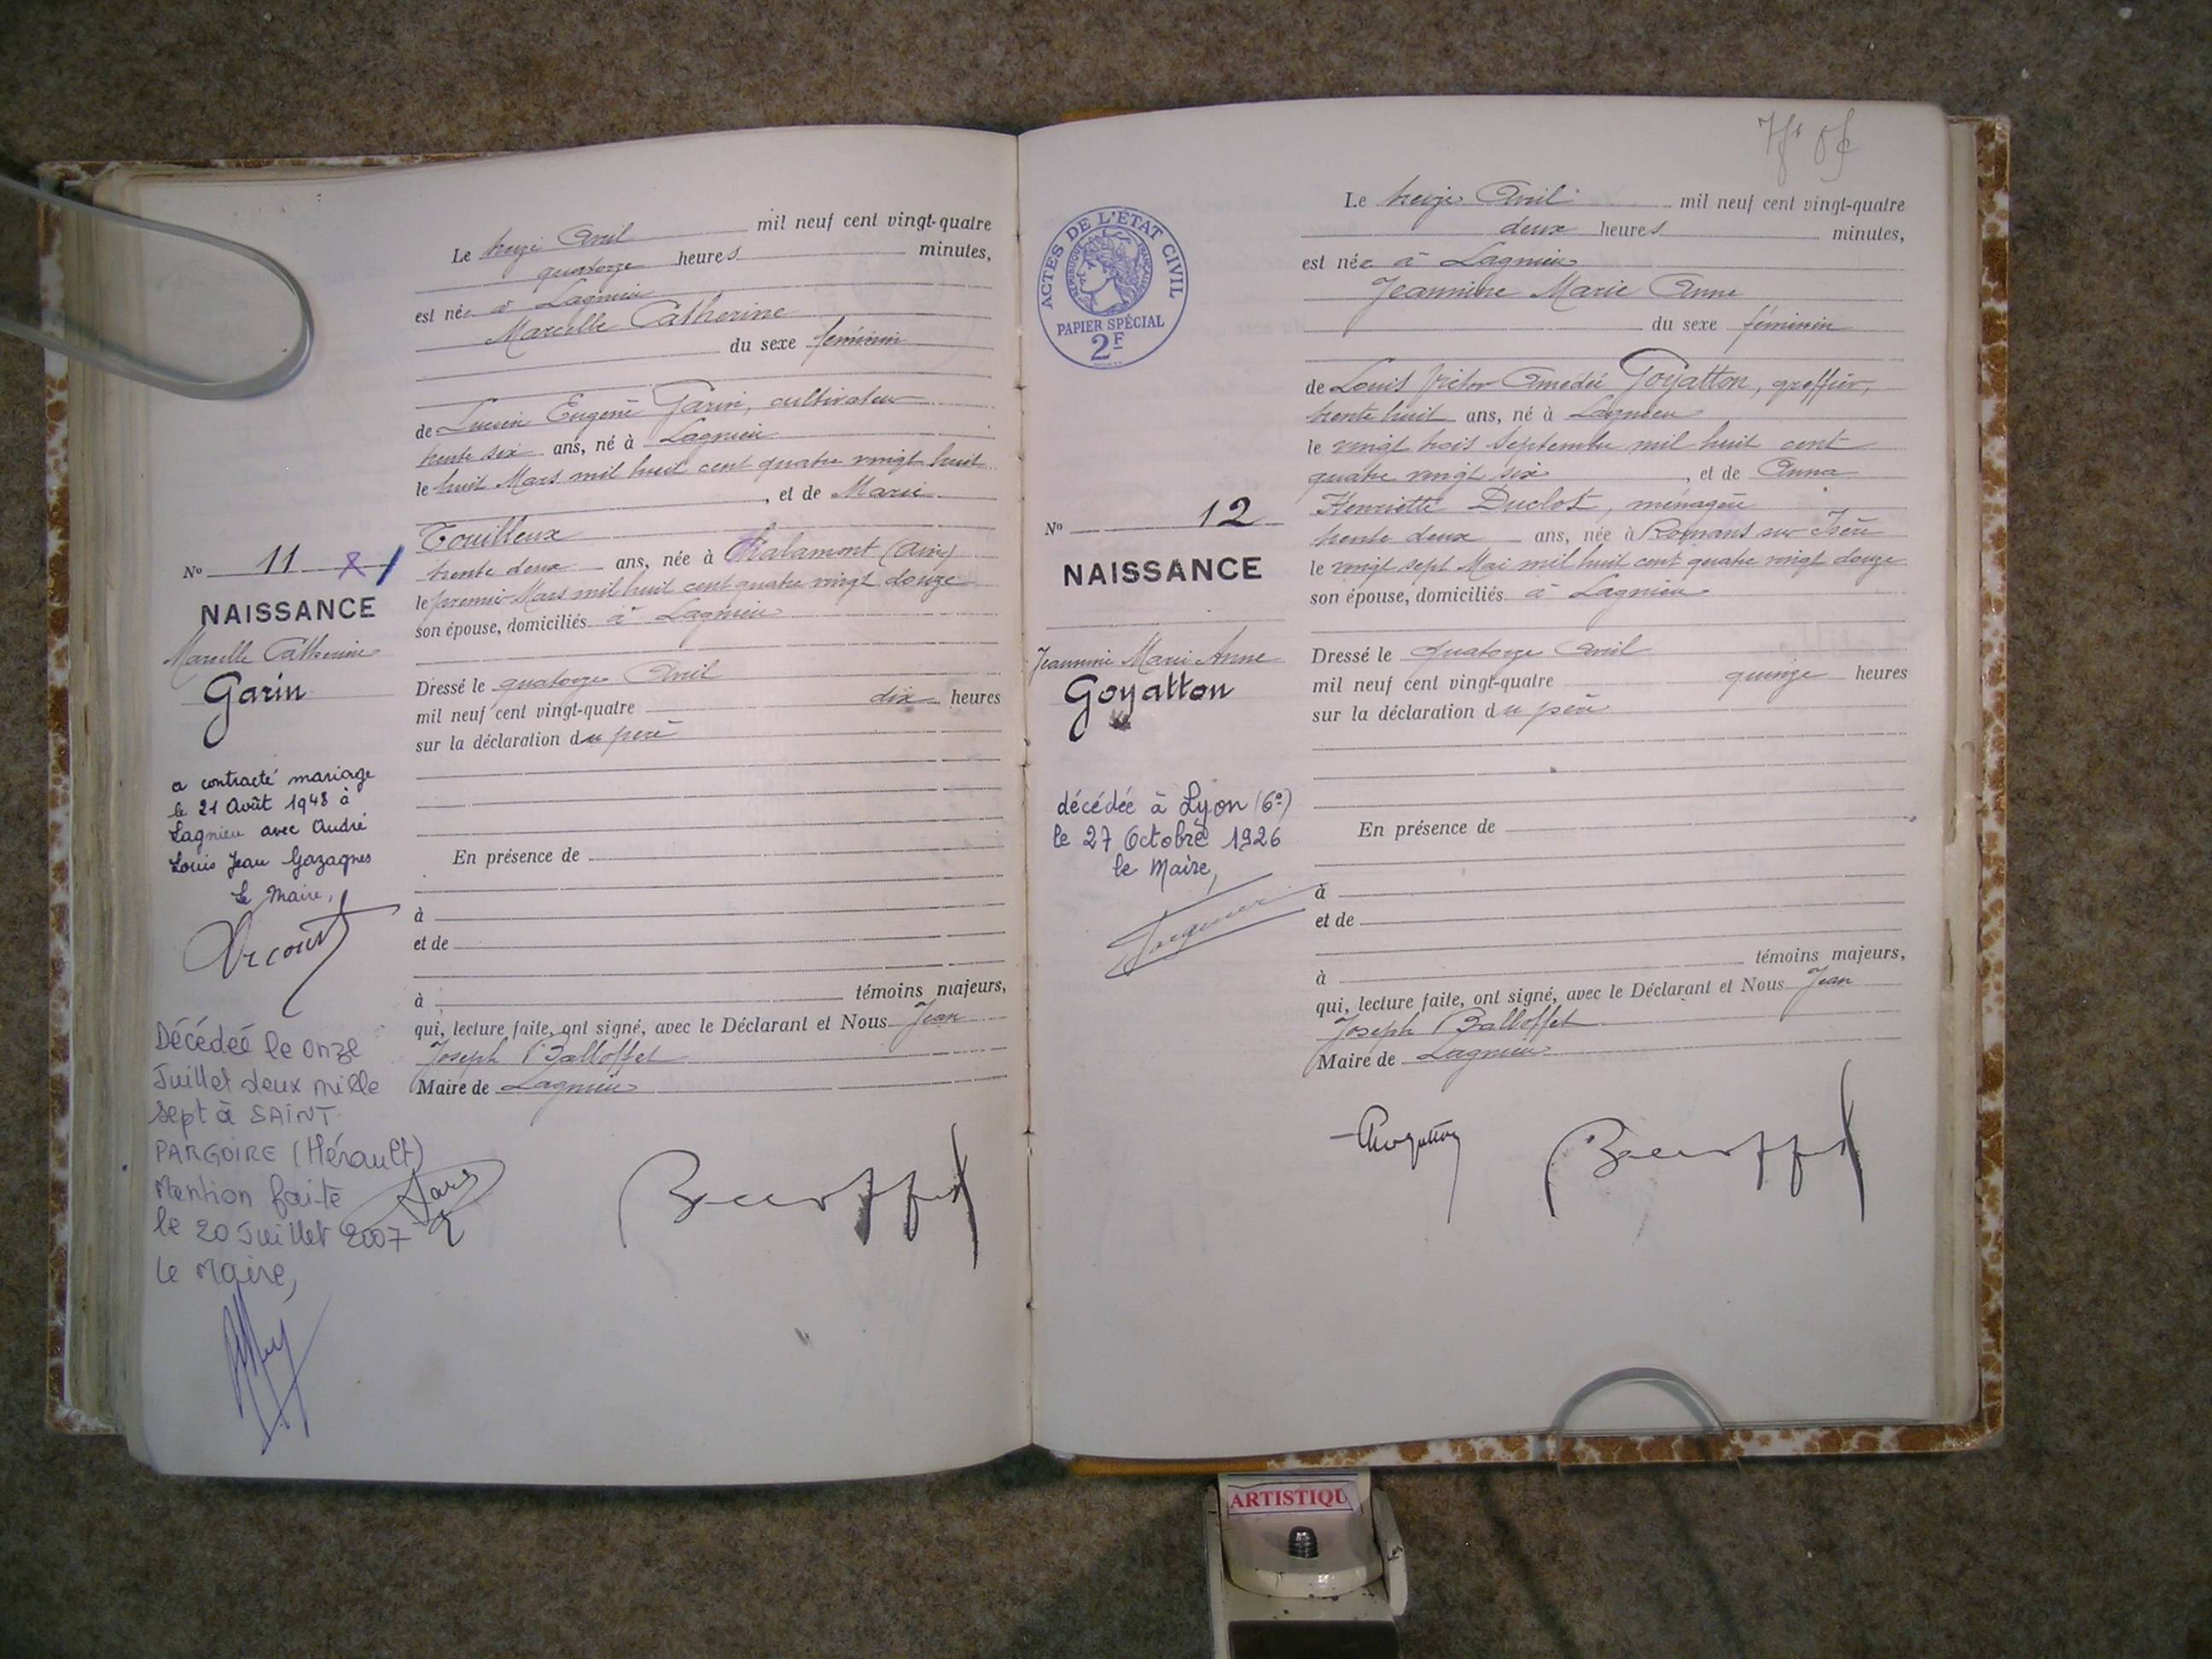 Le treize Avril mil neuf cent vingt-quatre
quatorze heures minutes,
est née à Lagnieu
Marcelle Catherine
du sexe féminin
de Lucien Eugène Garin, cultivateur
trente six ans, né à Lagnieu
le huit Mars mil huit cent quatre vingt huit
, et de Marie
Touilleux
trente deux ans, née à Chalamont (Ain)
le premier Mars mil huit cent quatre vingt douze
son épouse, domiciliés à Lagnieu
Dressé le quatorze Avril
mil neuf cent vingt-quatre dix heures
sur la déclaration du père
En présence de
à
et de
à témoins majeurs,
qui, lecture faite, ont signé, avec le Déclarant et Nous Jean
Joseph Balloffet
Maire de Lagnieu
Balloffet
No 11
NAISSANCE
Marcelle Catherine
Garin
a contracté mariage
le 21 Août 1948 à
Lagnieu avec André
Louis Jean Gazagnes
Le Maire,
Décédée le onze
Juillet deux mille
sept à SAINT
PARGOIRE (Hérault)
Mention faite
le 20 Juillet 2007
Le Maire,
ACTES DE L'ÉTAT CIVIL
RÉPUBLIQUE FRANÇAISE
PAPIER SPÉCIAL
2F
No 12
NAISSANCE
Jeannine Marie Anne
Goyatton
décédée à Lyon (6e)
le 27 Octobre 1926
le Maire,
Le treize Avril mil neuf cent vingt-quatre
deux heures minutes,
est née à Lagnieu
Jeannine Marie Anne
du sexe féminin
de Louis Victor Amédée Goyatton, greffier,
trente huit ans, né à Lagnieu
le vingt trois Septembre mil huit cent
quatre vingt six , et de Anna
Henriette Duclot, ménagère
trente deux ans, née à Romans sur Isère
le vingt sept Mai mil huit cent quatre vingt douze
son épouse, domiciliés à Lagnieu
Dressé le quatorze Avril
mil neuf cent vingt-quatre quinze heures
sur la déclaration du père
En présence de
à
et de
à témoins majeurs,
qui, lecture faite, ont signé, avec le Déclarant et Nous Jean
Joseph Balloffet
Maire de Lagnieu
Balloffet
ARTISTIQU